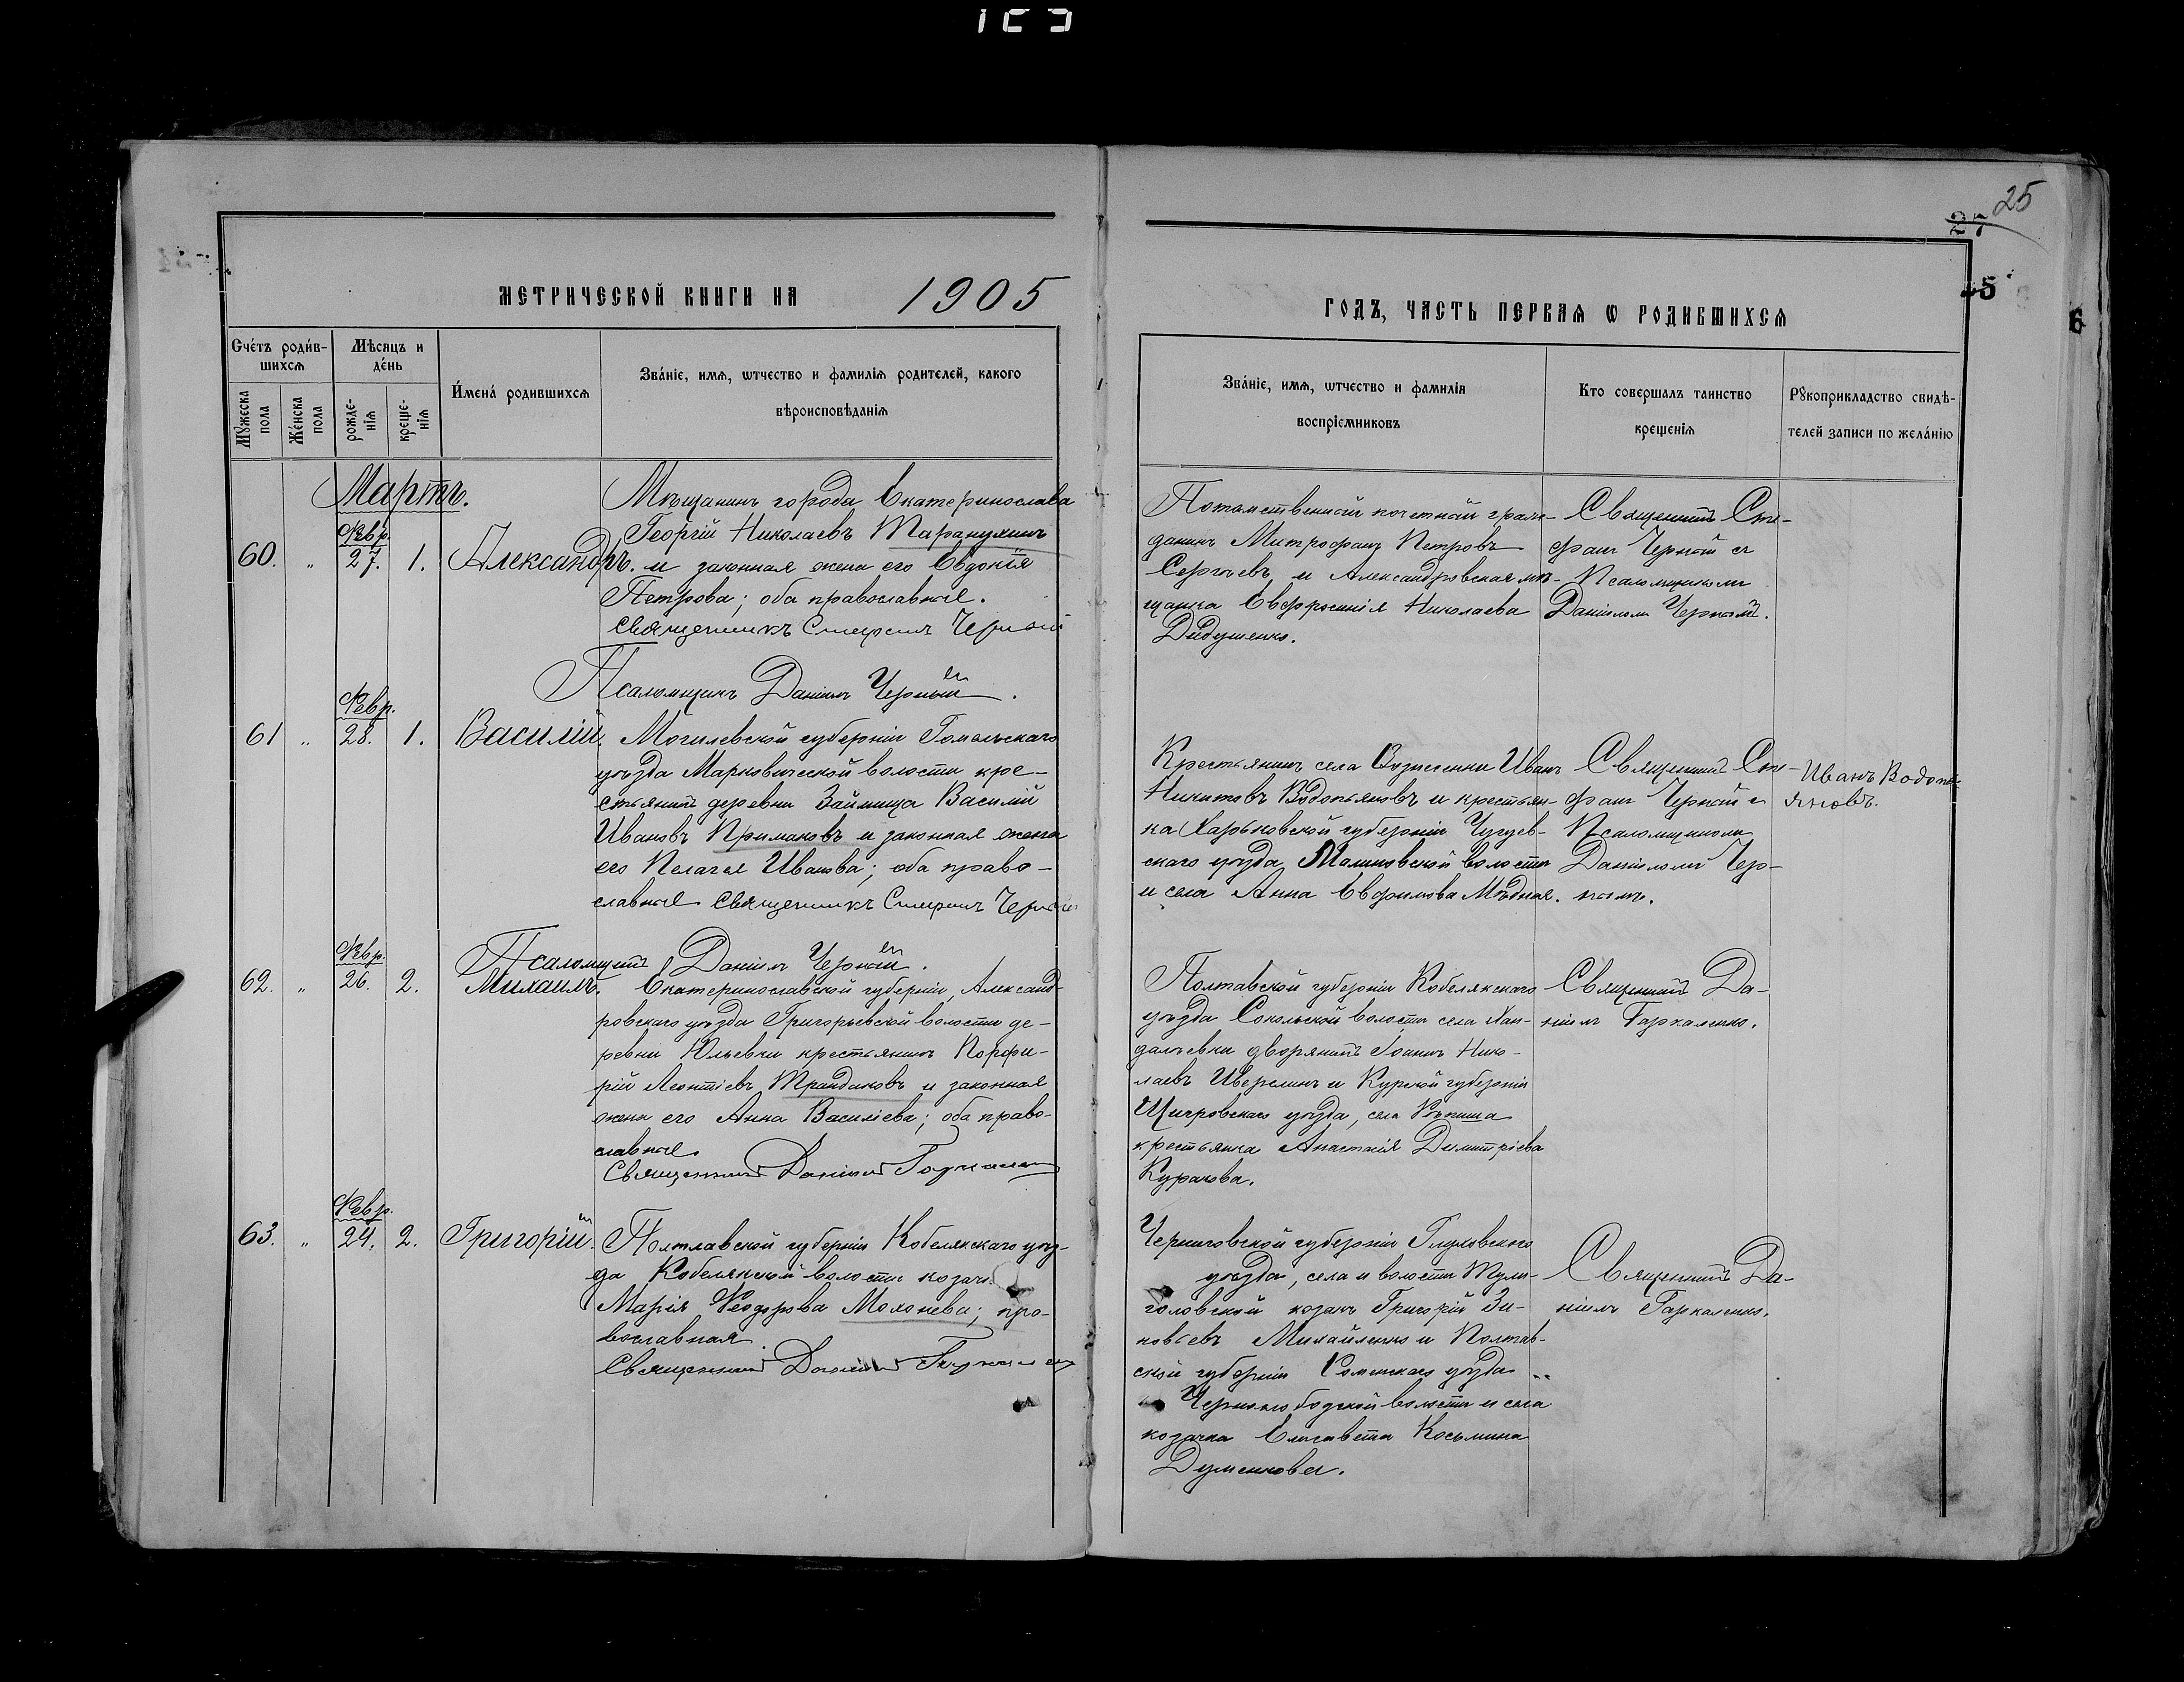 25
27
45
6
МЕТРИЧЕСКОЙ КНИГИ НА 1905
ГОДЪ, ЧАСТЬ ПЕРВАЯ Ѡ РОДИВШИХСЯ
Счéтъ роди́в-
шихся
Мѣсяцъ и
де́нь
Мꙋжеска
пола
Же́нска
пола
рожде-
нія
креще-
нія
И́мена́ родившихся
Зва́ніе, имя, ѡтчество и фамилія родителей, какого
вѣроисповѣданія
Зва́ніе, имя, ѡтчество и фамилія
воспріемниковъ
Кто совершалъ таинство
крещенія
Рꙋкоприкладство свидѣ-
телей записи по жела́нію
Мартъ.
60. „ Февр. 27. 1. Александръ.
Мѣщанинъ города Екатеринослава
Георгій Николаевъ
и законная жена его Евдокія
Петрова; оба православные.
Священникъ Стефанъ Черный
Псаломщикъ Даніилъ Черный.
Потомственный почетный граж-
данинъ Митрофанъ Петровъ
Сергѣевъ и Александровская мѣ-
щанка Евфросинія Николаева
Дидушенко.
Священникъ Сте-
фанъ Черный съ
Псаломщикомъ
Даніиломъ Чернымъ.
61 „ Февр. 28. 1. Василій.
Могилевской губерніи Гомельскаго
уѣзда Марковической волости кре-
стьянинъ деревни Займища Василій
Ивановъ Примаковъ и законная жена
его Пелагея Иванова; оба право-
славные Священникъ Стефанъ Черный
Псаломщикъ Даніилъ Черный.
Крестьянинъ села Вознесенки Иванъ
Никитовъ Водопьяновъ и крестьян-
ка Харьковской губерніи Чугуев-
скаго уѣзда, Малиновской волости
и села Анна Евфимова Мѣдная.
Священникъ Сте-
фанъ Черный съ
Псаломщикомъ
Даніиломъ Чер-
нымъ.
Иванъ Водопь-
яновъ.
62. „ Февр. 26. 2. Михаилъ.
Екатеринославской губерніи, Александ-
ровскаго уѣзда Григорьевской волости де-
ревни Юльевки крестьянинъ Порфи-
рій Леонтіевъ Трандаковъ и законная
жена его Анна Василіева; оба право-
славные.
Священникъ Даніилъ Гаркаленко
Полтавской губерніи Кобелякскаго
уѣзда Сокольской волости села Хан-
далѣевки дворянинъ Іоаннъ Нико-
лаевъ и Курской губерніи
Щигровскаго уѣзда, села
крестьянка Анастасія Димитріева
Куракова.
Священникъ Да-
ніилъ Гаркаленко.
63. „ Февр. 24. 2. Григорій.
Полтавской губерніи Кобелякскаго уѣз-
да Кобелякской волости козач.
Марія Ѳеодорова Мохонева; пра-
вославная.
Священникъ Даніилъ Гаркаленко
Черниговской губерніи Глуховского
уѣзда, села и волости Тули-
головской козакъ Григорій Зи-
новьевъ Михайленко и Полтав-
ской губерніи Роменскаго уѣзда
Чернослободской волости и села
козачка Елисавета Косьмина
Думенкова.
Священникъ Да-
ніилъ Гаркаленко.